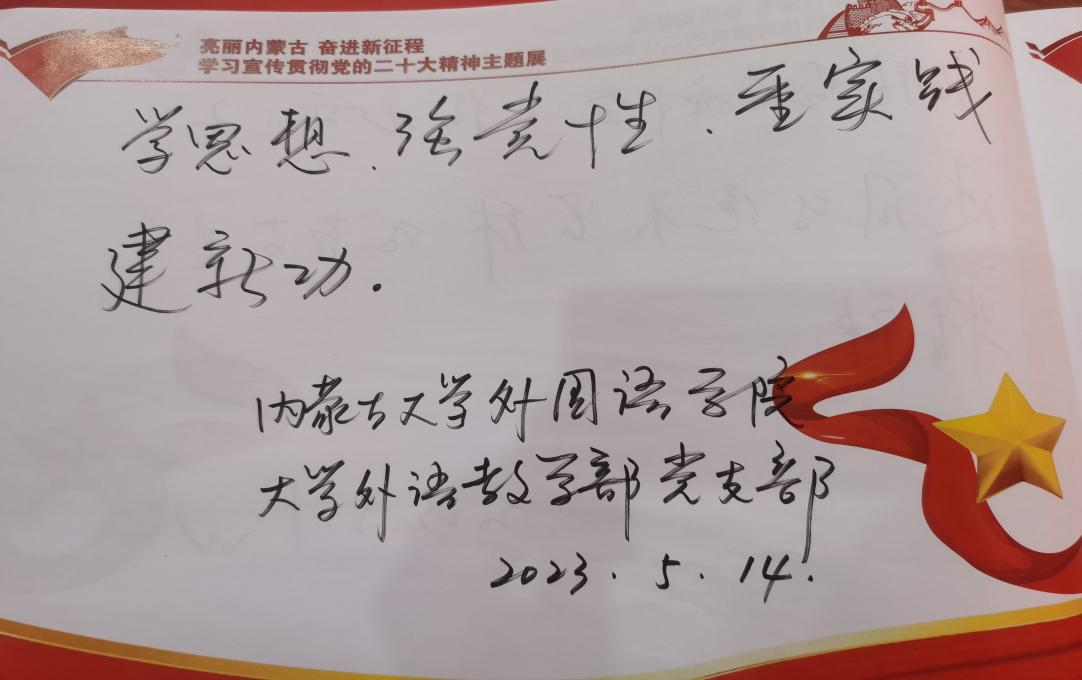 亮丽内蒙古 奋进新征程
学习宣传贯彻党的二十大精神主题展
学思想、强党性、重实践
建新功.
内蒙古大学外国语学院
大学外语教学部党支部
2023.5.14.